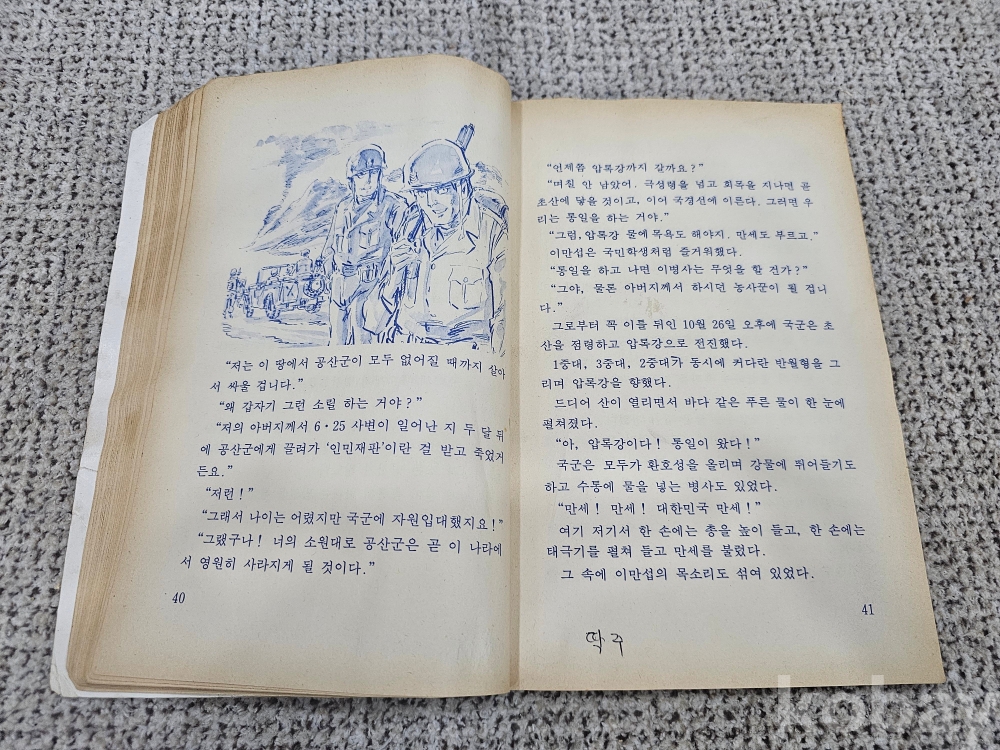 “저는 이 땅에서 공산군이 모두 없어질 때까지 살아
서 싸울 겁니다.”
“왜 갑자기 그런 소릴 하는 거야?”
“저의 아버지께서 6·25 사변이 일어난 지 두 달 뒤
에 공산군에게 끌려가 ‘인민재판’이란 걸 받고 죽었거
든요.”
“저런!”
“그래서 나이는 어렸지만 국군에 자원입대했지요!”
“그랬구나! 너의 소원대로 공산군은 곧 이 나라에
서 영원히 사라지게 될 것이다.”
40
“언제쯤 압록강까지 갈까요?”
“며칠 안 남았어. 극성령을 넘고 회목을 지나면 곧
초산에 닿을 것이고, 이어 국경선에 이른다. 그러면 우
리는 통일을 하는 거야.”
“그럼, 압록강 물에 목욕도 해야지. 만세도 부르고.”
이만섭은 국민학생처럼 즐거워했다.
“통일을 하고 나면 이병사는 무엇을 할 건가?”
“그야, 물론 아버지께서 하시던 농사꾼이 될 겁니
다.”
그로부터 꼭 이틀 뒤인 10월 26일 오후에 국군은 초
산을 점령하고 압록강으로 전진했다.
1중대, 3중대, 2중대가 동시에 커다란 반월형을 그
리며 압록강을 향했다.
드디어 산이 열리면서 바다 같은 푸른 물이 한 눈에
펼쳐졌다.
“아, 압록강이다! 통일이 왔다!”
국군은 모두가 환호성을 올리며 강물에 뛰어들기도
하고 수통에 물을 넣는 병사도 있었다.
“만세! 만세! 대한민국 만세!”
여기 저기서 한 손에는 총을 높이 들고, 한 손에는
태극기를 펼쳐 들고 만세를 불렀다.
그 속에 이만섭의 목소리도 섞여 있었다.
41
딱주
kobay